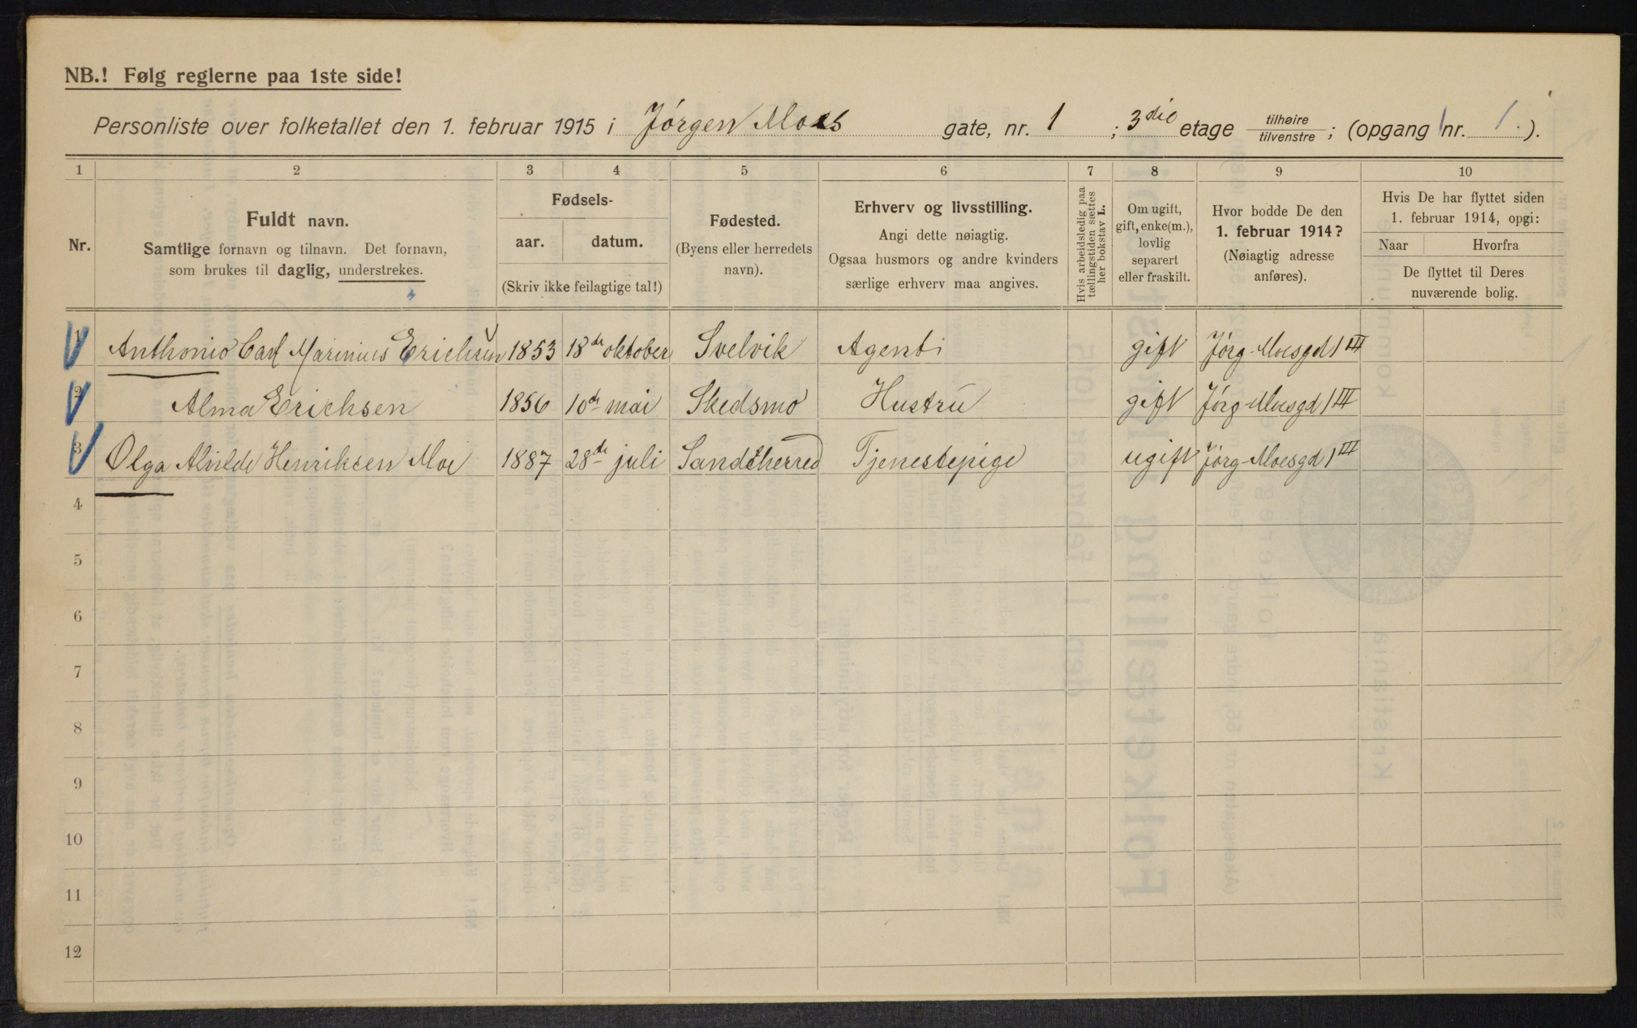 NB.! Følg reglerne paa 1ste side!
Personliste over folketallet den 1. februar 1915 i Jørgen Moes gate, nr. 1 ; 3die etage tilhøire / tilvenstre ; (opgang nr. 1.).
1 2 3 4 5 6 7 8 9 10
Nr.
Fuldt navn.
Samtlige fornavn og tilnavn. Det fornavn,
som brukes til daglig, understrekes.
Fødsels-
aar. datum.
(Skriv ikke feilagtige tal!)
Fødested.
(Byens eller herredets
navn).
Erhverv og livsstilling.
Angi dette nøiagtig.
Ogsaa husmors og andre kvinders
særlige erhverv maa angives.
Hvis arbeidsledig paa
tællingstiden sættes
her bokstav L.
Om ugift,
gift, enke(m.),
lovlig
separert
eller fraskilt.
Hvor bodde De den
1. februar 1914?
(Nøiagtig adresse
anføres).
Hvis De har flyttet siden
1. februar 1914, opgi:
Naar Hvorfra
De flyttet til Deres
nuværende bolig.
1 Anthonio Carl Marinius Erichsen 1853 18de oktober Svelvik Agent gift Jørg. Moesgd 1 III
2 Alma Erichsen 1856 10de mai Skedsmo Hustru gift Jørg. Moesgd 1 III
3 Olga Alvilde Henriksen Moe 1887 28de juli Sandeherred Tjenestepige ugift Jørg. Moesgd 1 III
4
5
6
7
8
9
10
11
12